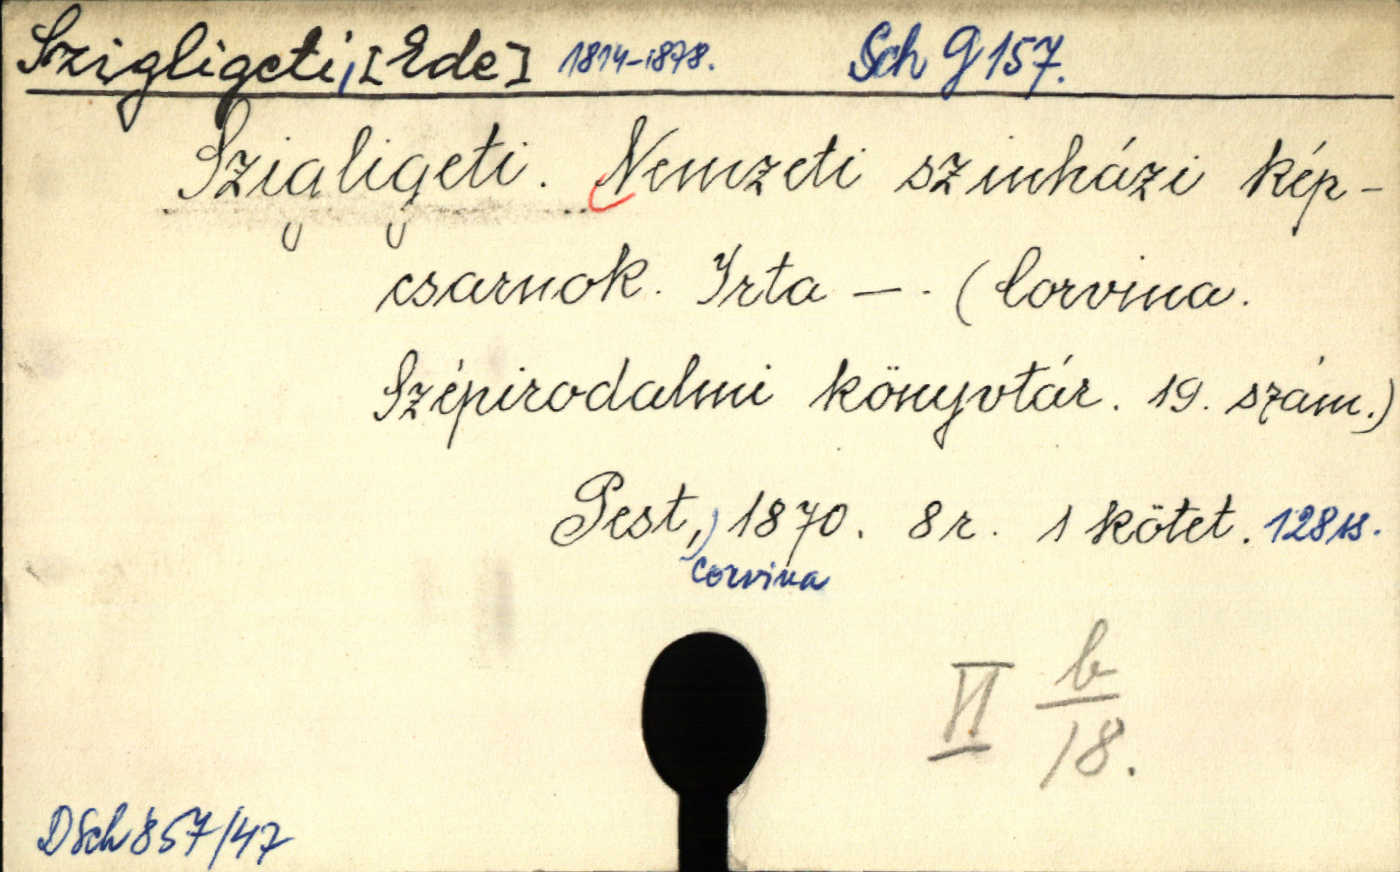 Szigligeti, [Ede] 1814-1878. Sch G 157.
Szigligeti. Nemzeti szinházi kép-
csarnok. Irta —. (Corvina.
Szépirodalmi könyvtár. 19. szám.)
Pest, 1870. 8r. 1 kötet. 128 s.
Corvina
VI b/18.
DSch 857/47